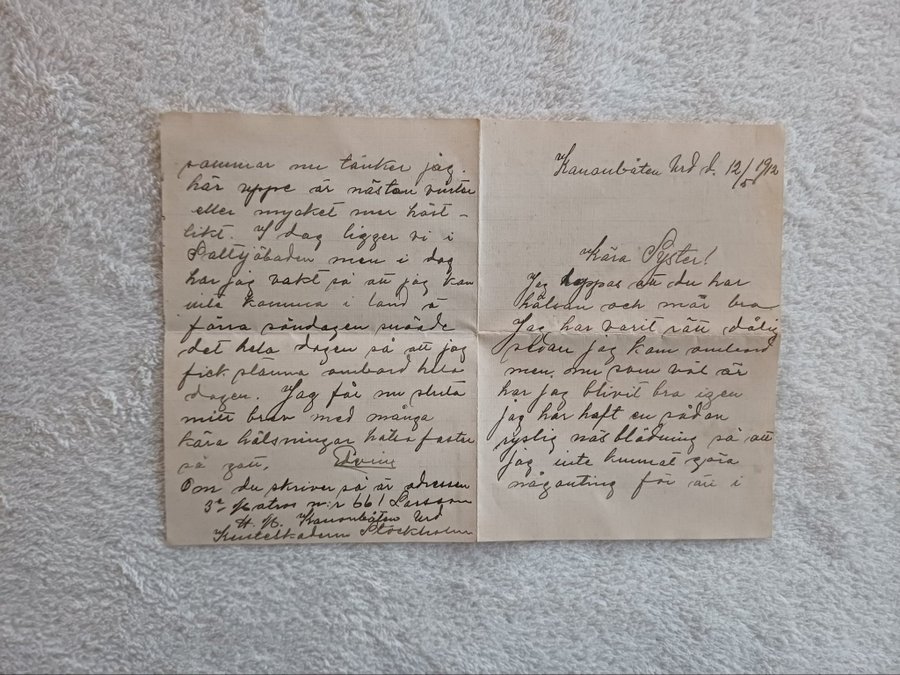 Kanonbåten Urd d. 12/5 1912
Kära Syster!
Jag hoppas att du har
hälsan och mår bra
Jag har varit rätt dålig
sedan jag kom ombord
men nu som väl är
har jag blivit bra igen
jag har haft en sådan
ryslig näsblödning så att
jag inte kunnat göra
någonting för än i
sommar nu tänker jag.
här uppe är nästan vinter
eller mycket mer höst-
likt. I dag ligger vi i
Saltsjöbaden men i dag
har jag vakt så att jag kan
inte komma i land å
förra söndagen snöade
det hela dagen så att jag
fick stanna ombord hela
dagen. Jag får nu sluta
mitt brev med många
kära hälsningar hälsa faster
så gott. Edvin
Om du skriver så är adressen
3e Matros n:r 661 Larsson
H. M. Kanonbåten Urd
Kusteskadern Stockholm